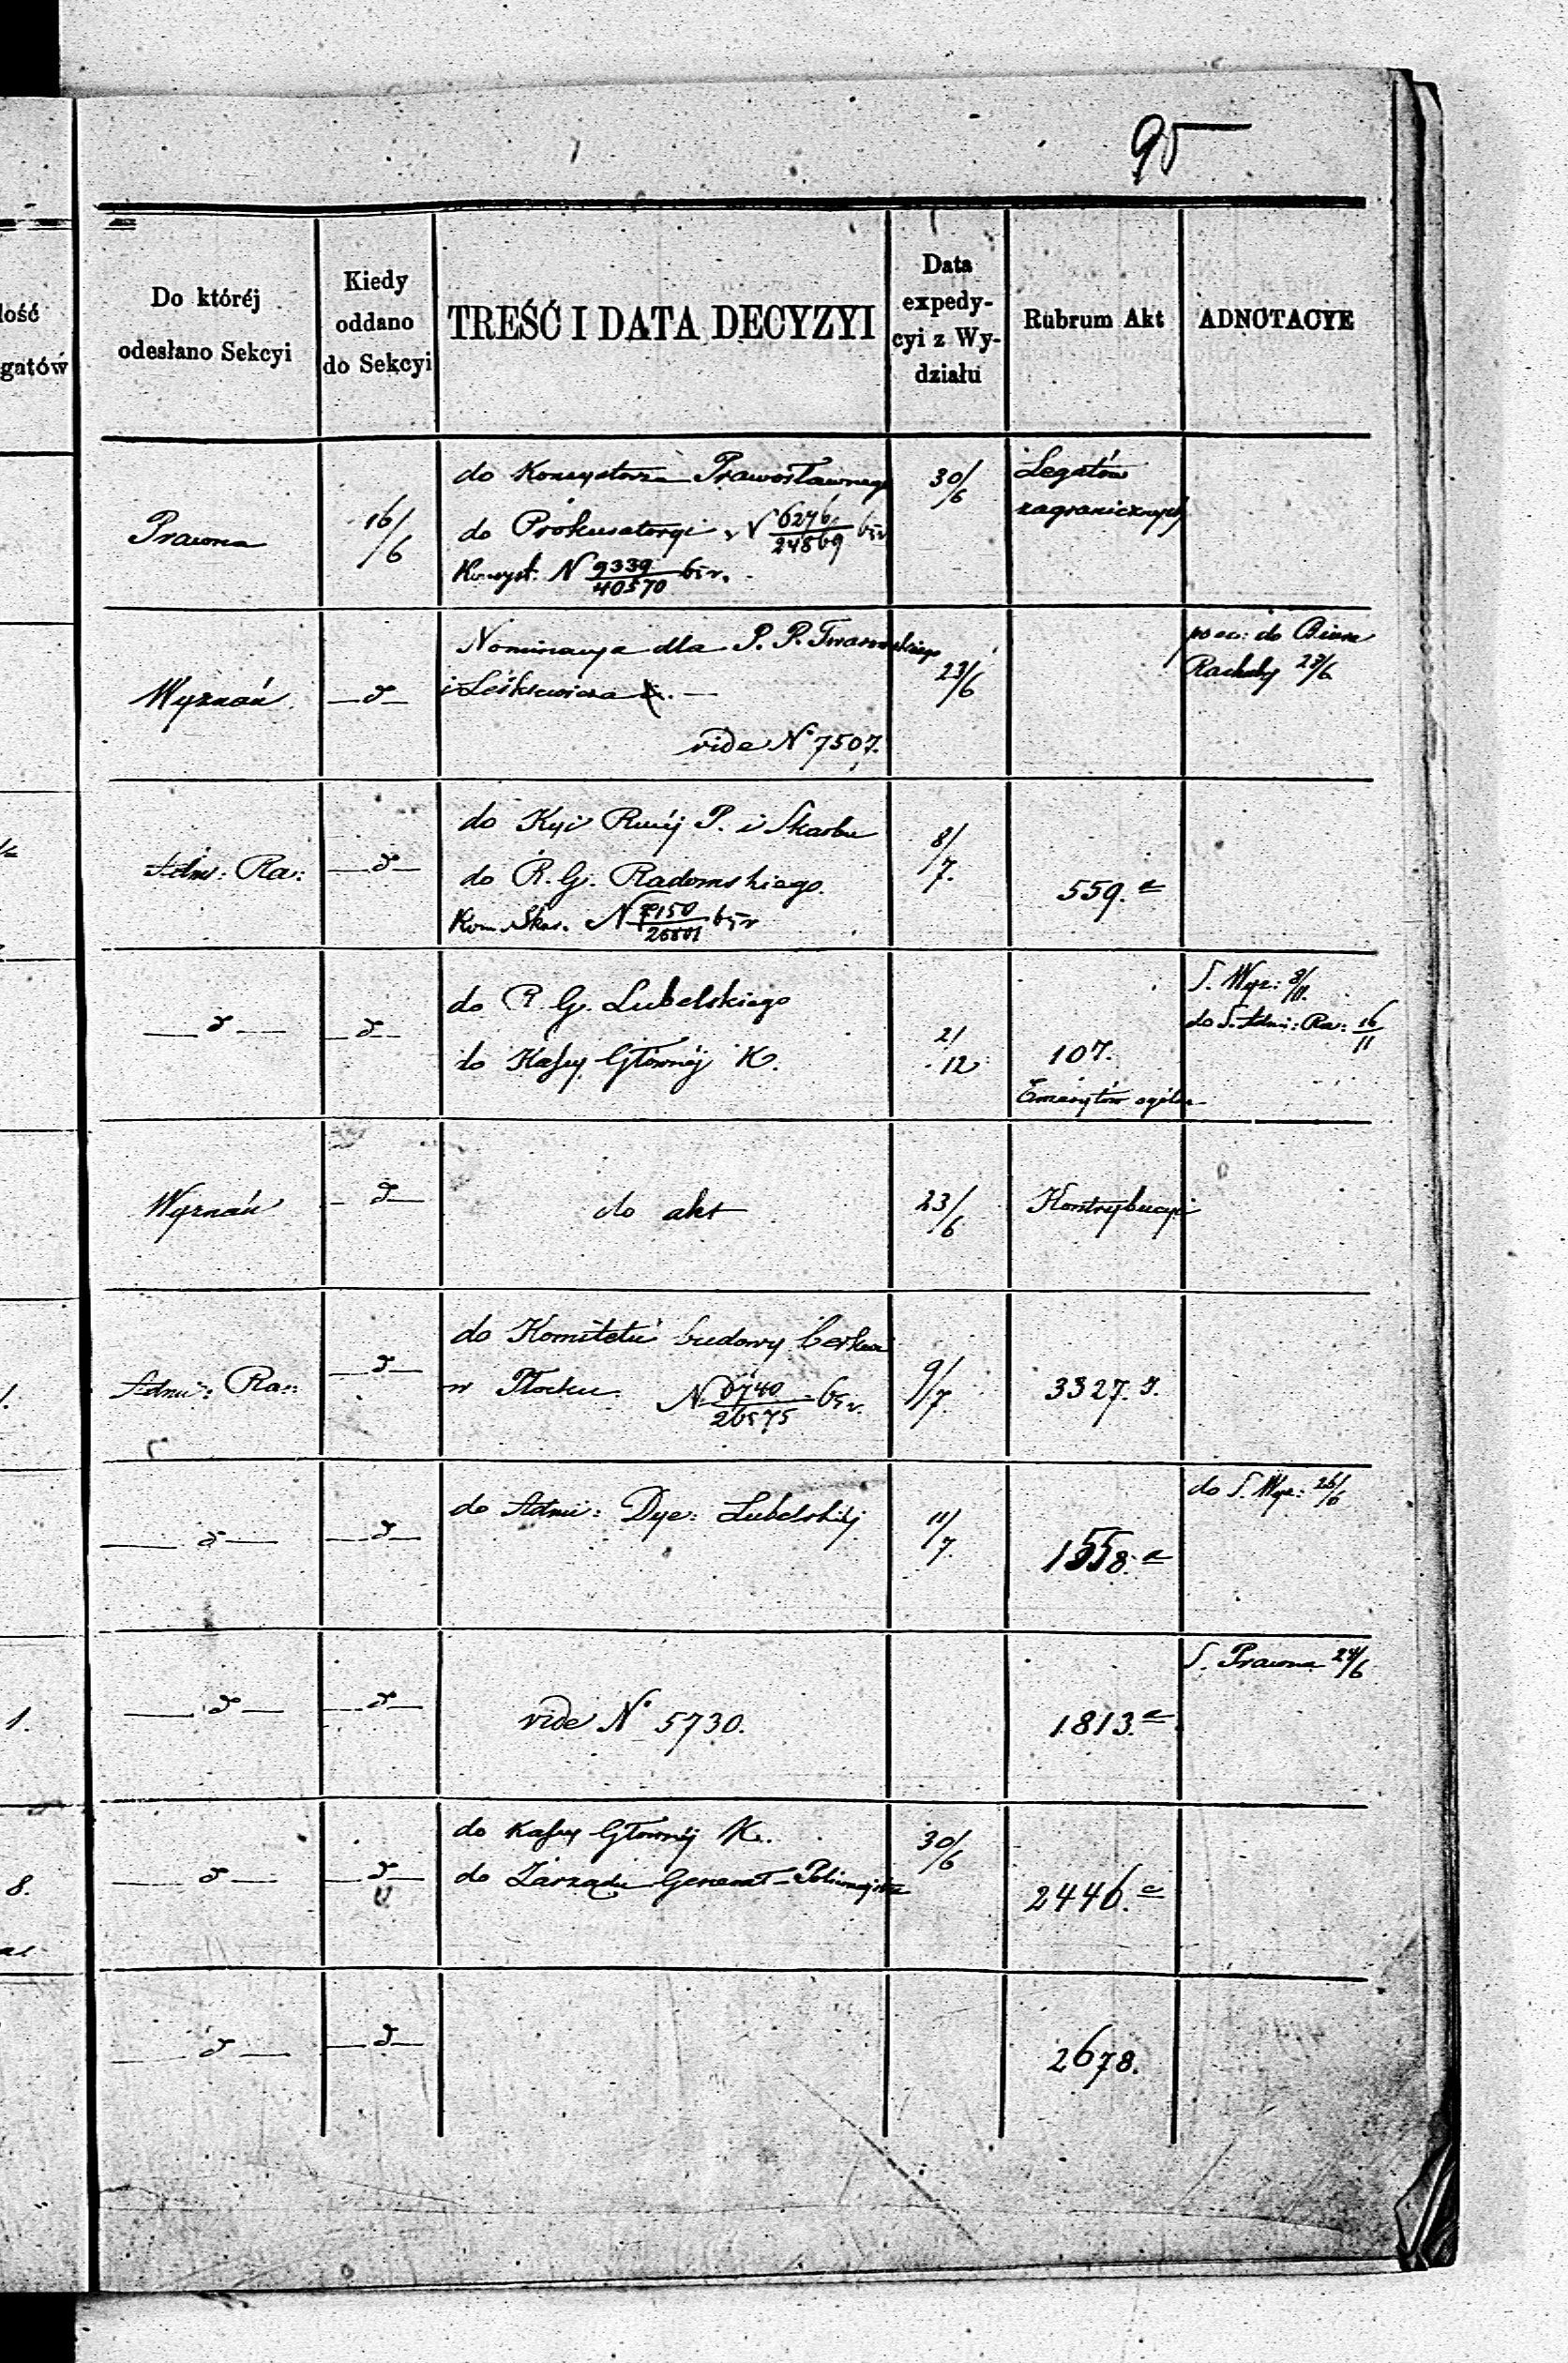 95
lość
gatów
Do któréj
odesłano Sekcyi
Kiedy
oddano
do Sekcyi
TREŚĆ I DATA DECYZYI
Data
expedy-
cyi z Wy-
działu
Rubrum Akt
ADNOTACYE
Prawna
16/6
do Konsystorza Prawosławnego
do Prokuratoryi N 6276/24869 65 r
Konsyst. N 9339/40570 65 r.
30/6
Legatów
zagranicznych
Wyznań
—d—
Nominacya dla P. P. Twarowskiego
i Leśkiewicza
vide N° 7507.
23/6
do Biura
Rachuby 23/6
Adm: Ra:
—d—
do Kyi Rząj P. i Skarbu
do R. G. Radomskiego.
Kom. Skar. N 7150/26801 65 r
8/7.
559. a
—d—
—d—
do R. G. Lubelskiego
do Kassy Głównéj K.
21
12
107.
Emerytów ogóln
S. Wyz: 8/11.
do S. Adm: Ra: 16/11
Wyznań
—d—
do akt
23/6
Kontrybucyi
Adm: Ra:
—d—
do Komitetu budowy Cerkwi
w Płocku. N 6740/26575 65 r.
9/7.
3327. J.
—d—
—d—
do Adm: Dye: Lubelskiéj
11/7.
1558. a
do S. Wyz: 26/6
1.
—d—
—d—
vide N° 5730.
1813. a
S. Prawna 24/6
8.
—d—
—d—
do Kassy Głównéj K.
do Zarządu Generał-Policmajstra
30/6
2446. a
—d—
—d—
2678.